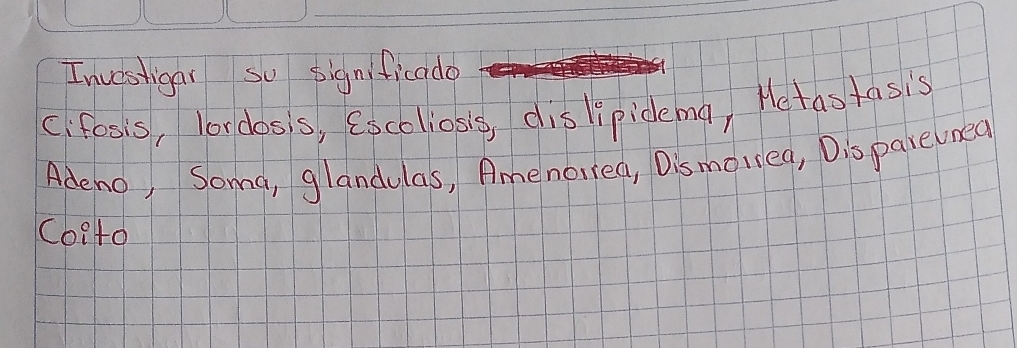 Investigar su significado
Cifosis, lordosis, Escoliosis, dislipidema, Metastasis
Adeno, Soma, glandulas, Amenorrea, Dismorrea, Dispareunea
Coito